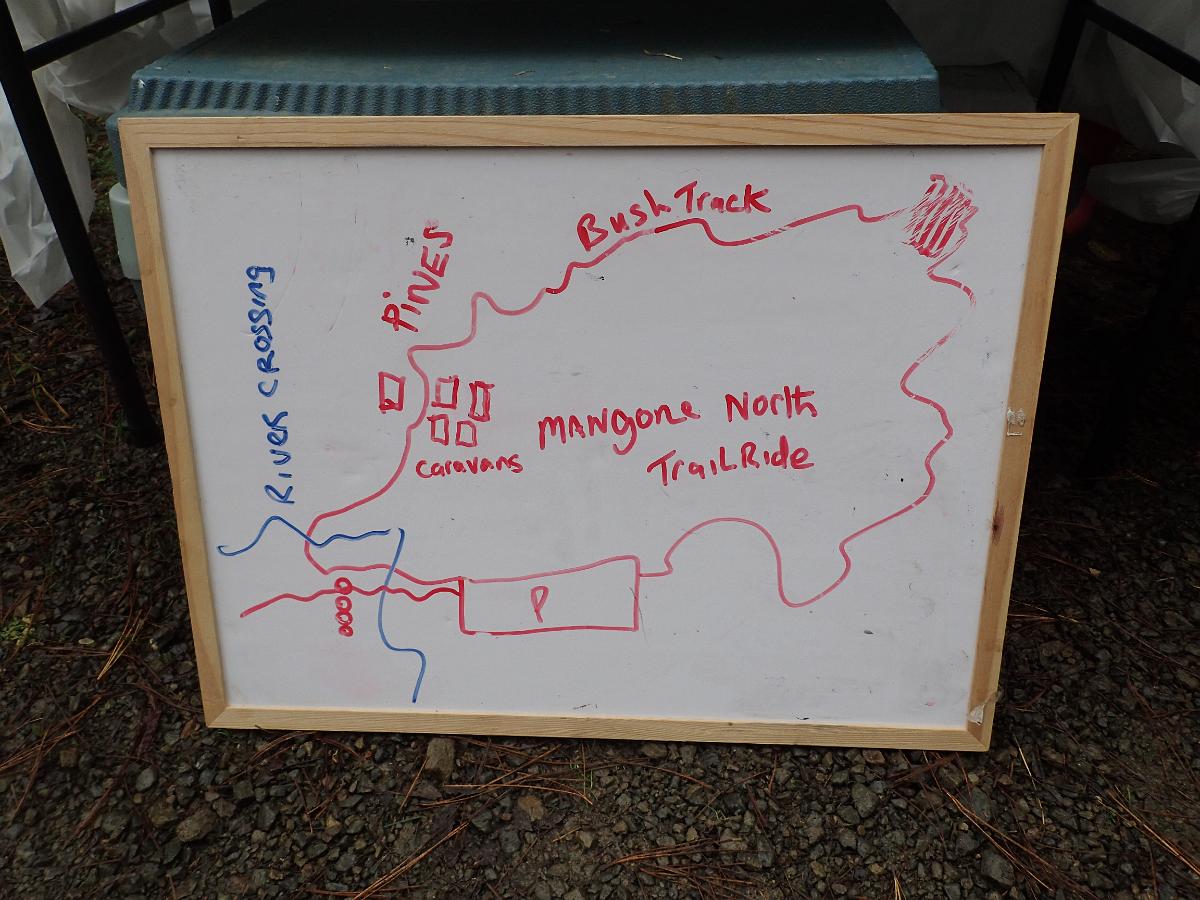 Bush Track
PINES
RIVER CROSSING
MANgONe North
TraiL Ride
caravans
P